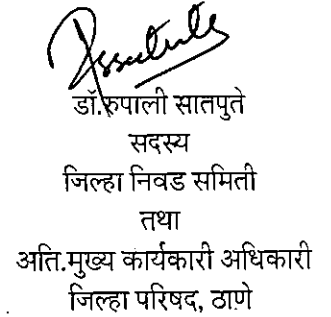 डॉ.रुपाली सातपुते
सदस्य
जिल्हा निवड समिती
तथा
अति.मुख्य कार्यकारी अधिकारी
जिल्हा परिषद, ठाणे